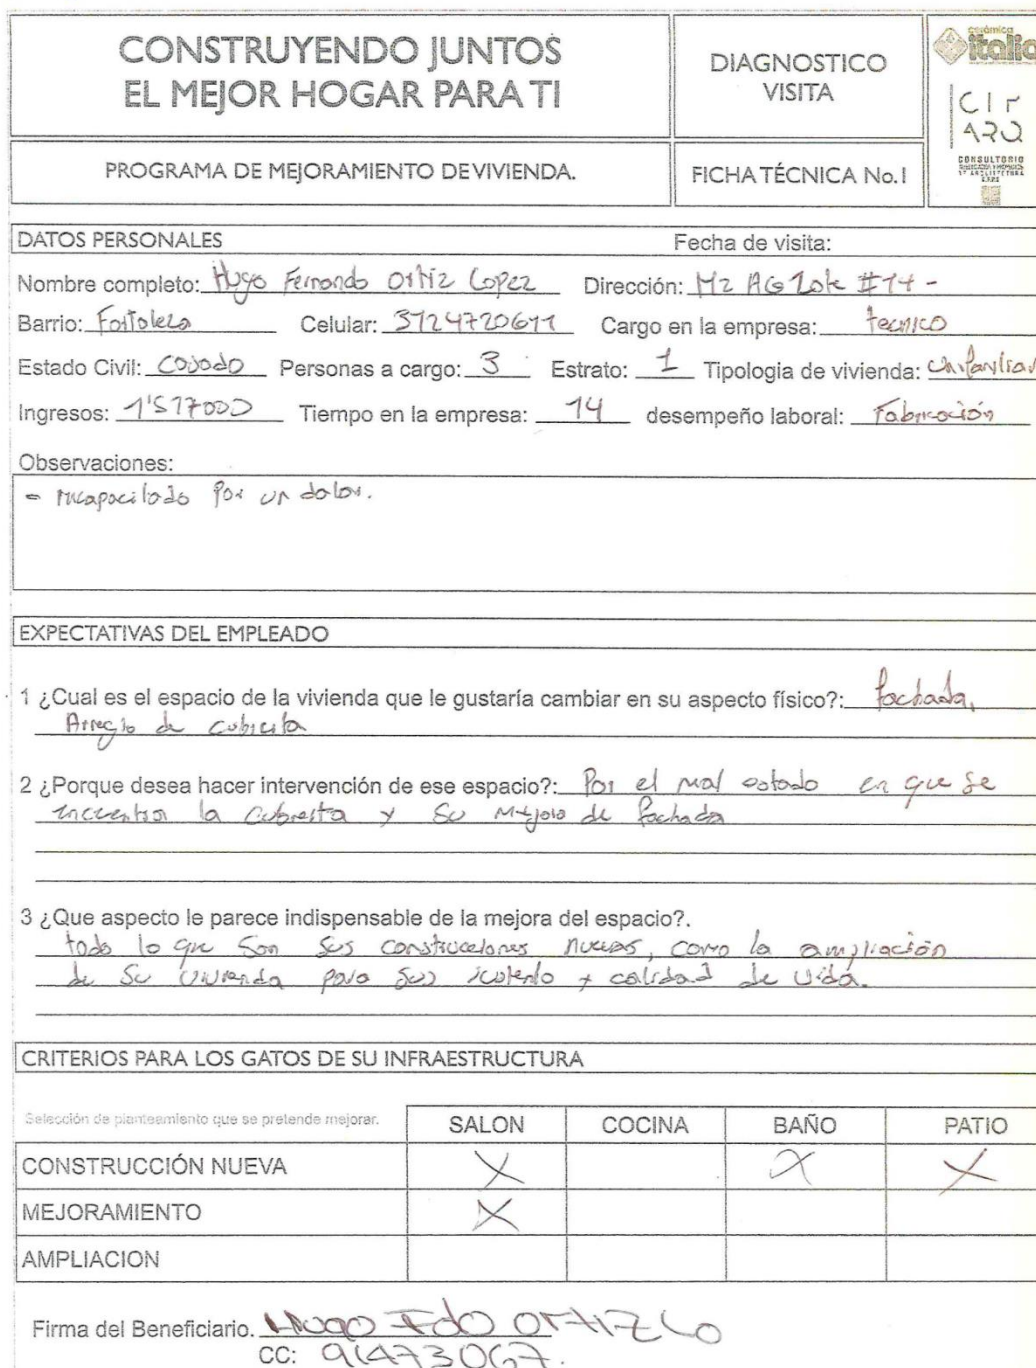 CONSTRUYENDO JUNTOS
EL MEJOR HOGAR PARA TI
DIAGNOSTICO
VISITA
cerámica
italia
CONSULTORIO
PROGRAMA DE MEJORAMIENTO DE VIVIENDA.
FICHA TÉCNICA No.1
DATOS PERSONALES Fecha de visita:
Nombre completo: Hugo Fernando Ortiz Lopez Dirección: Mz AG Lote #14 -
Barrio: Fortaleza Celular: 3124720611 Cargo en la empresa: tecnico
Estado Civil: Casado Personas a cargo: 3 Estrato: 1 Tipologia de vivienda: Unifamiliar
Ingresos: 1'517000 Tiempo en la empresa: 14 desempeño laboral: Fabricación
Observaciones:
- Incapacitado Por un dolor.
EXPECTATIVAS DEL EMPLEADO
1 ¿Cual es el espacio de la vivienda que le gustaría cambiar en su aspecto físico?: fachada,
Arreglo de cubierta
2 ¿Porque desea hacer intervención de ese espacio?: Por el mal estado en que se
encuentra la cubierta y su mejora de fachada
3 ¿Que aspecto le parece indispensable de la mejora del espacio?.
todo lo que son sus construcciones nuevas, como la ampliación
de su vivienda para sus y calidad de vida.
CRITERIOS PARA LOS GATOS DE SU INFRAESTRUCTURA
Selección de planteamiento que se pretende mejorar. SALON COCINA BAÑO PATIO
CONSTRUCCIÓN NUEVA X X X
MEJORAMIENTO X
AMPLIACION
Firma del Beneficiario. Hugo Fdo Ortiz Lo
CC: